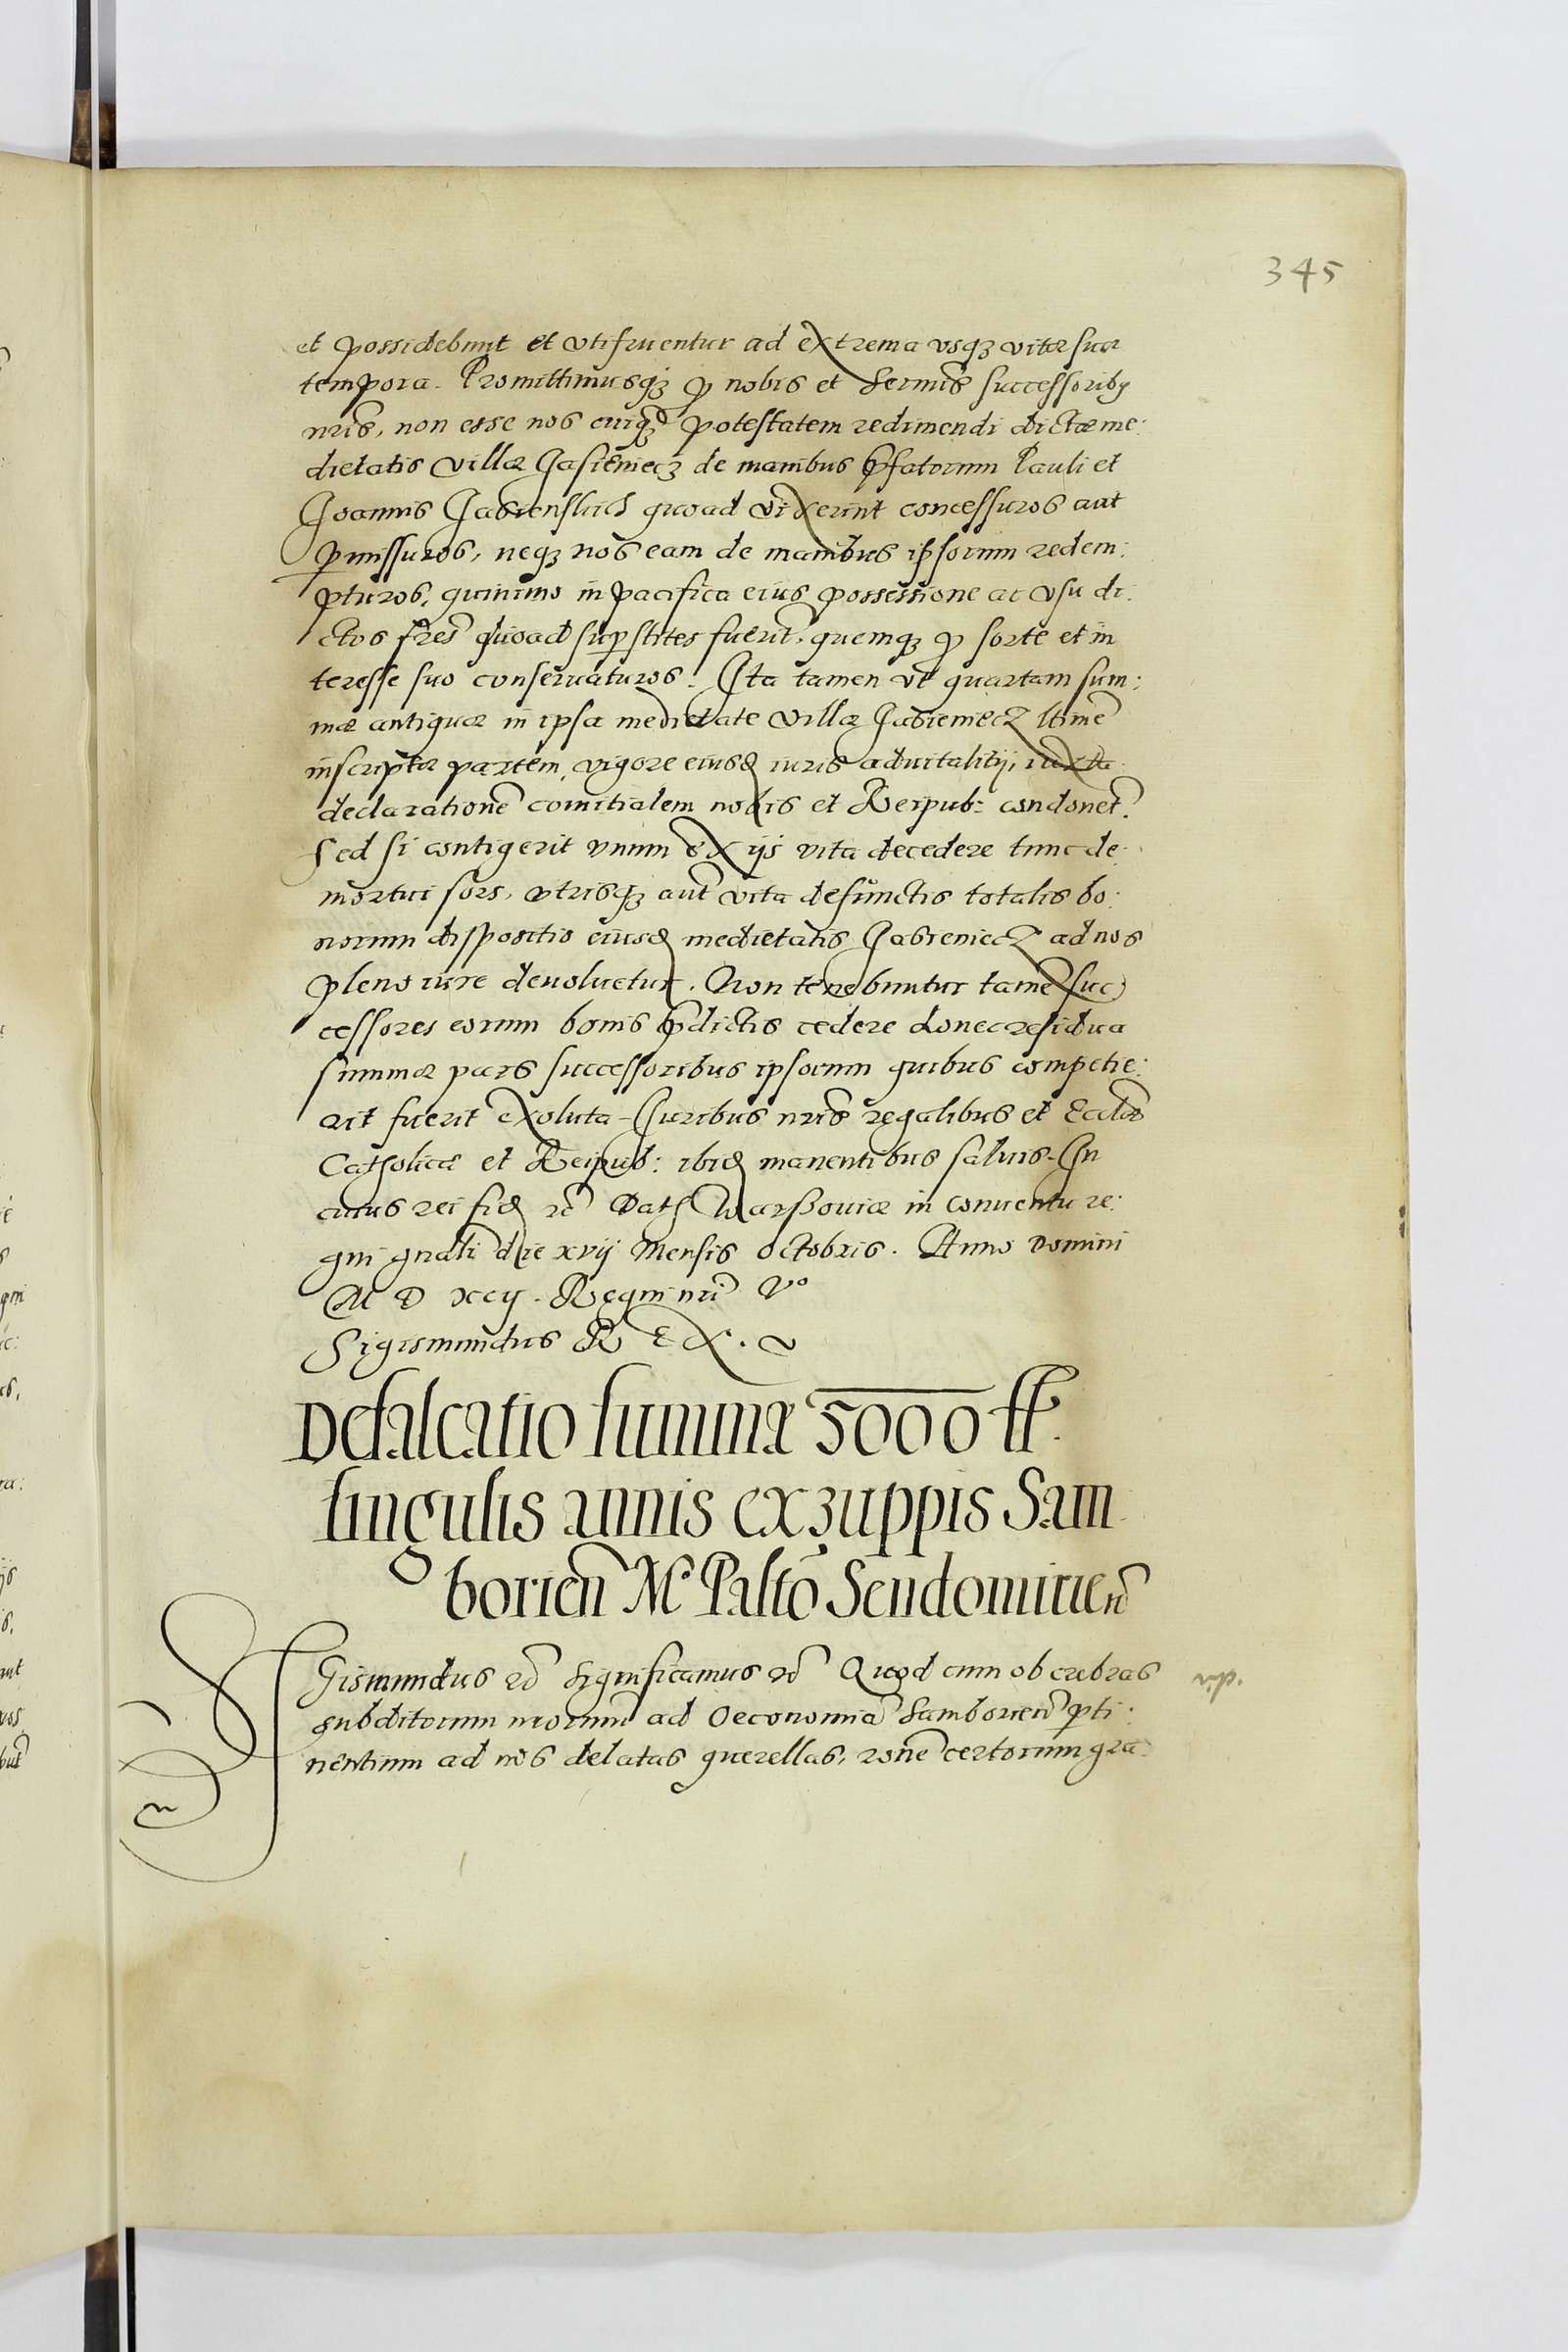 345
et possidebunt et utifruentur ad extrema usq3 vitæ suæ
tempora. Promittimusq3 p nobis et sermis successorib9
nris, non esse nos cuiq3 potestatem redimendi dictæ me:
dietatis villæ Jasieniecz de manibus pfatorum Pauli et
Joannis Jasienskich quoad vixerint concessuros aut
pmissuros, neq3 nos eam de manibus ipsorum redem:
pturos, quinimo in pacifica eius possessione ac usu di:
ctos fres quoad supstites fuerit, quemq3 p sorte et in
teresse suo conservaturos. Ita tamen ut quartam sum:
mæ antiquæ in ipsa medietate villæ Jasieniecz ltime
inscriptæ partem, vigore eiusd iuris advitalitij, iuxta
declaratione comitialem nobis et Reipub: condonet.
Sed si contigerit unum ex ijs vita decedere tunc de:
mortui sors, utrisq3 aut vita defunctis totalis bo:
norum dispositio eiusd medietatis Jasieniecz ad nos
pleno iure devoluetur. Non tenebuntur tame suc
cessores eorum bonis pdictis cedere donec residua
summæ pars successoribus ipsorum quibus competie:
rit fuerit exoluta. Juribus nris regalibus et Ecclæ
Catholicæ et Reipub: ibid manentibus salvis. In
cuius rei fid rc Dat Warssoviæ in conventu re:
gni gnali die xvij Mensis Octobris. Anno Domini
M D xcij. Regni nri Vº
Sigismundus R E X.
Defalcatio summæ 5000 ff.
singulis annis ex zuppis Sam
borien Mº Palto Sendomirien
Sigismundus rc Significamus rc Quod cum ob crebras
subditorum nrorum ad Oeconomia Samborien pti:
nentium ad nos delatas querellas, rone certorum gra